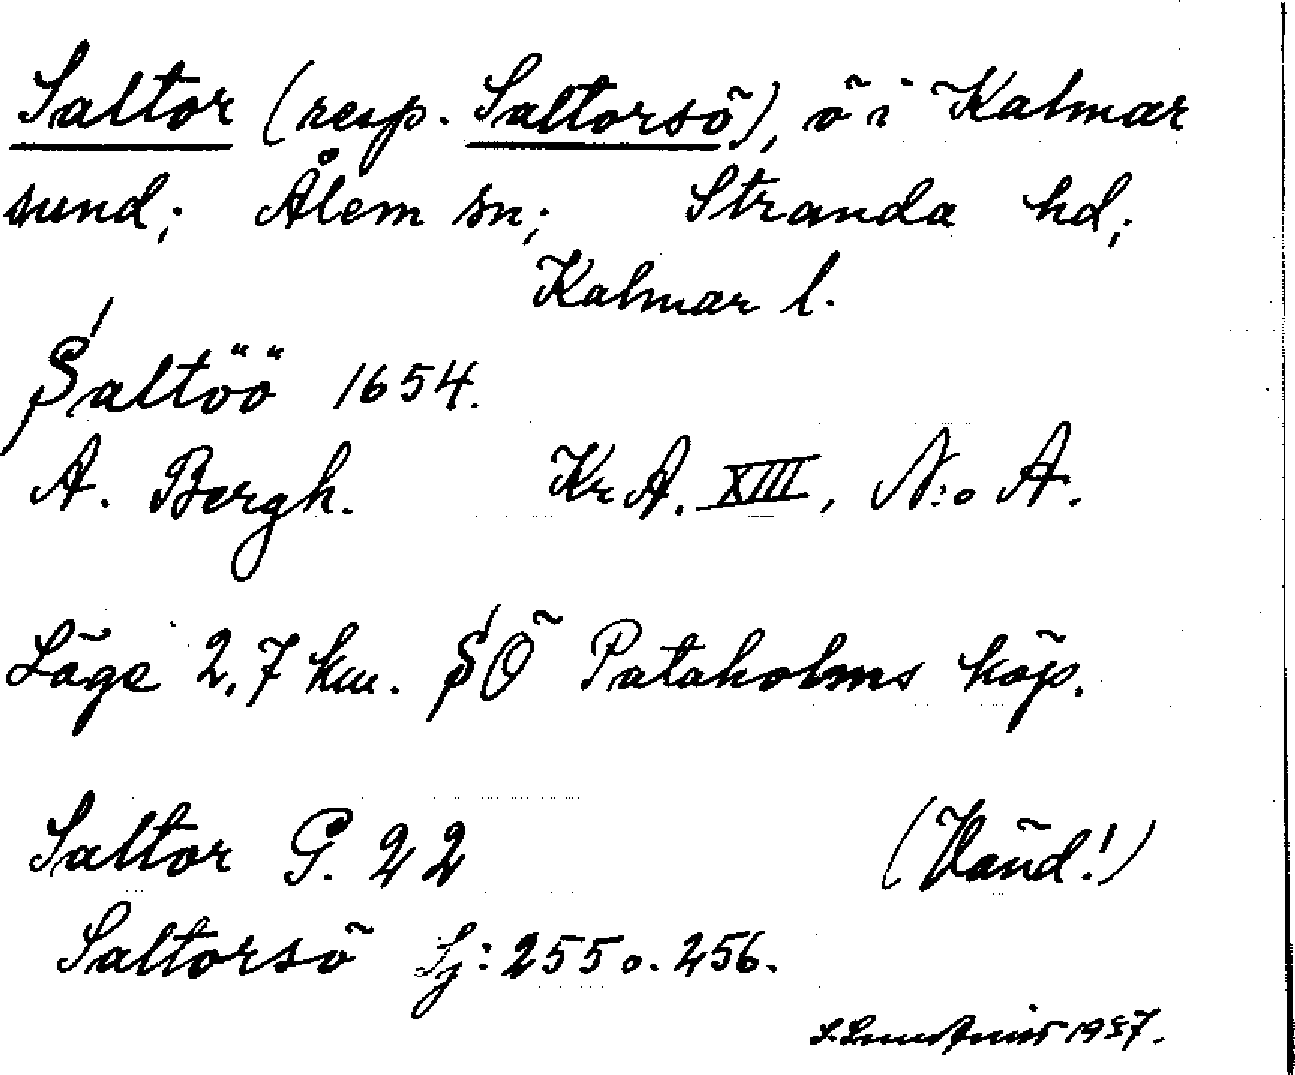 Saltor (resp. Saltorsö), ö i Kalmar
sund; Ålem sn; Stranda hd;
Kalmar l.
Saltöö 1654.
A. Bergh. Kr. A. XIII, N:o A.
Läge 2,7 km. SÖ Pataholms köp.
Saltor G. 22 (Vänd!)
Saltorsö Sj: 255 o. 256.
1937.